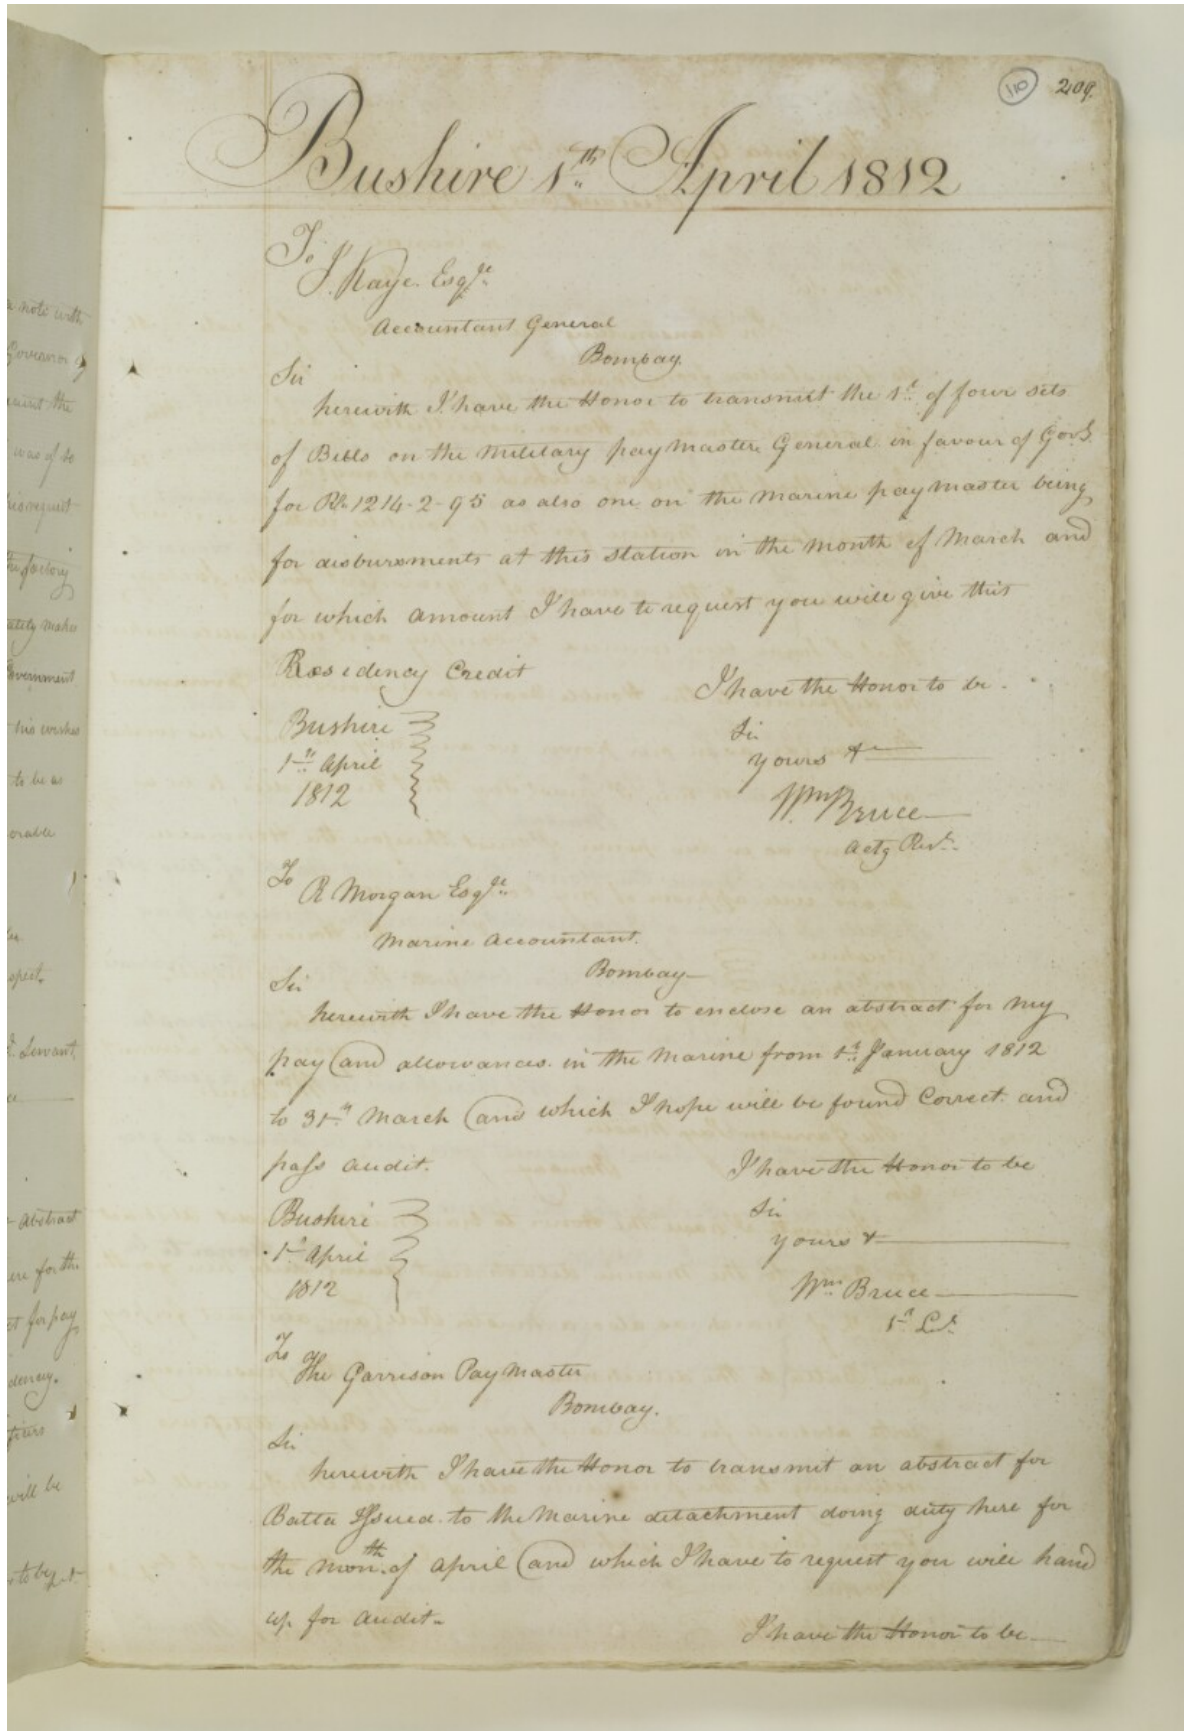 110 209.
Bushire 1th April 1812
To
J. Kaye Esqre
Accountant General
Bombay.
Sir
herewith I have the Honor to transmit the 1st of four sets
of Bills on the Military paymaster General in favour of Govt.
for Rs 1214-2-95 as also one on the Marine paymaster being
for disbursments at this station in the month of March and
for which amount I have to request you will give this
Residency Credit
I have the Honor to be.
Bushire
Sir
1st April
yours &c
1812
Wm Bruce
actg Rest.
To
R Morgan Esqre
Marine Accountant.
Bombay
Sir
herewith I have the Honor to enclose an abstract for my
pay and allowances in the Marine from 1st January 1812
to 31st March and which I hope will be found Correct and
pass audit.
I have the Honor to be
Bushire
Sir
1st April
yours &
1812
Wm Bruce
1st Lt.
To
The Garrison Pay Master
Bombay.
Sir
herewith I have the Honor to transmit an abstract for
Batta Issued to the Marine detachment doing duty here for
the month of April and which I have to request you will hand
up for audit.
I have the Honor to be
a note with
Governor
was of so
his request
the factory
Government
his wishes
to be as
t. Servant
abstract
for the
for pay
will be
to be